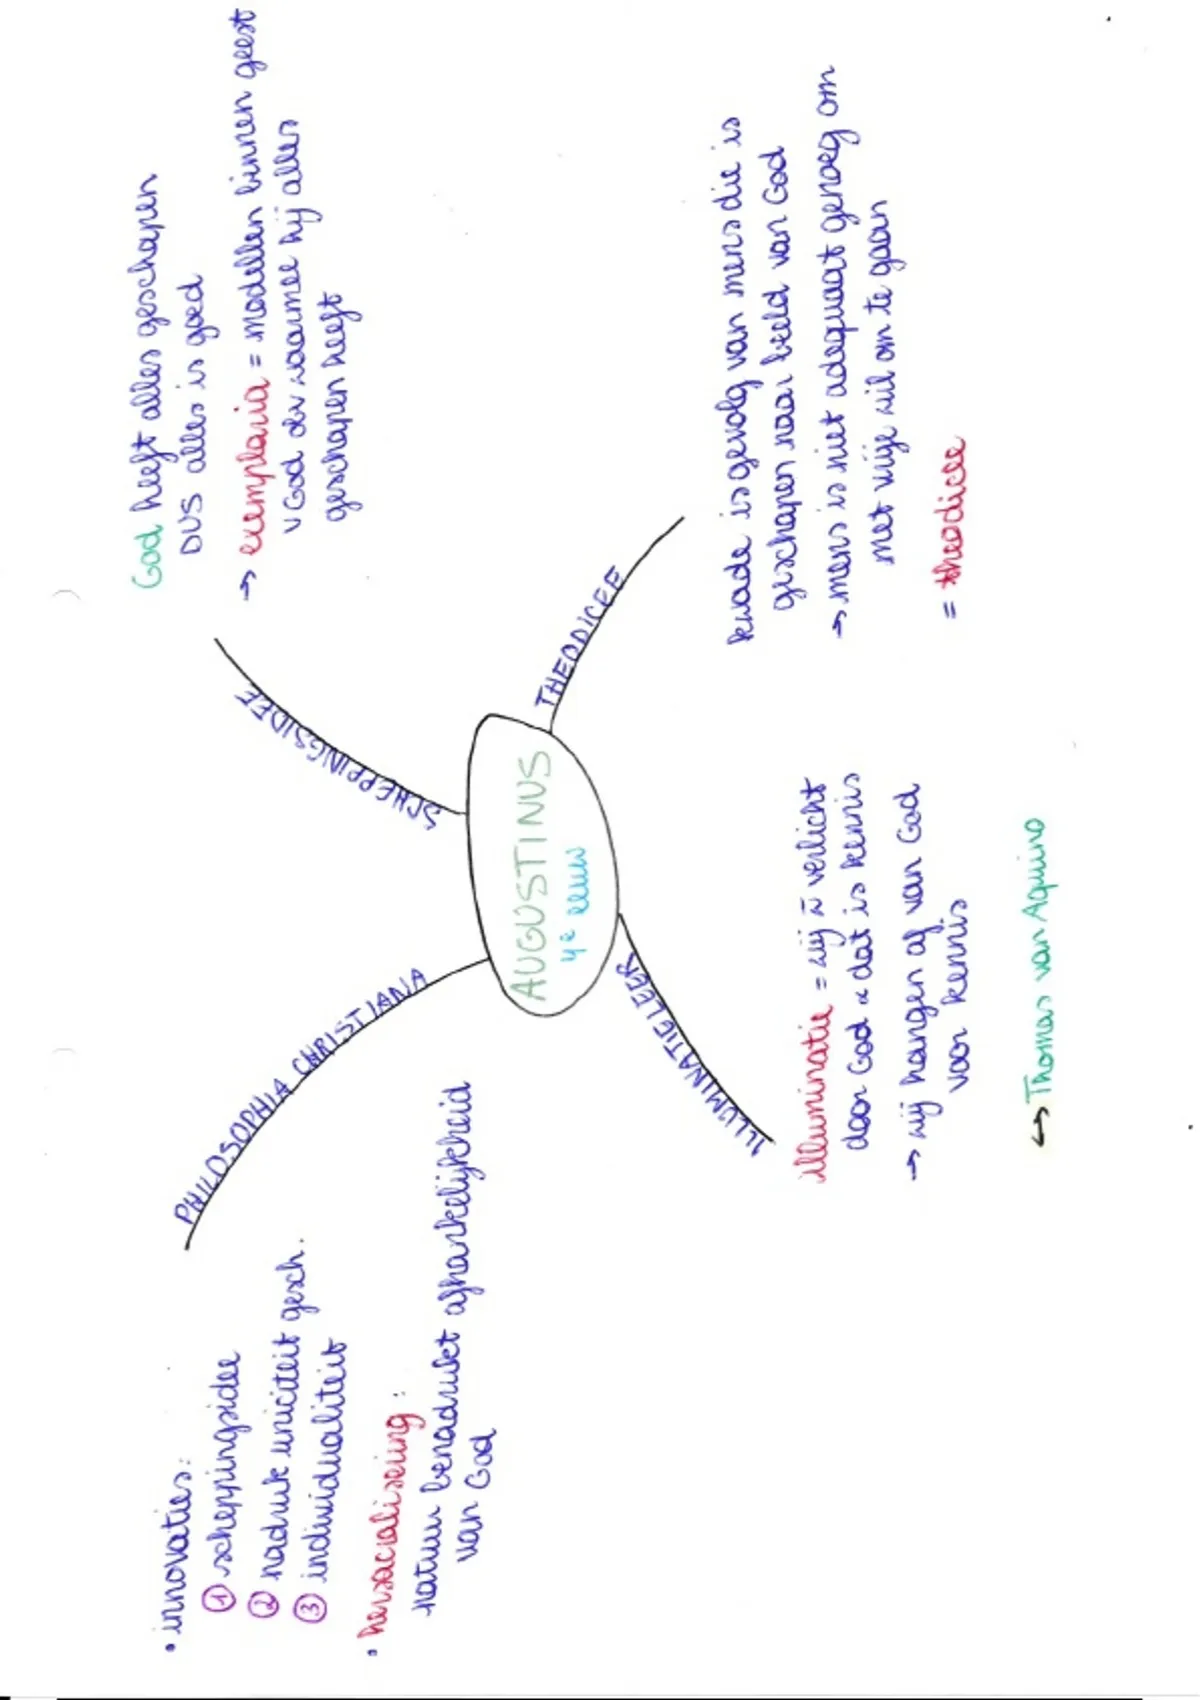 AUGUSTINUS
4e eeuw
PHILOSOPHIA CHRISTIANA
• innovaties:
① scheppingsidee
② nadruk uniciteit gesch.
③ individualiteit
• hersacralisering:
natuur benadrukt afhankelijkheid
van God
SCHEPPINGSIDEE
God heeft alles geschapen
DUS alles is goed
→ exemplaria = modellen binnen geest
v God dv waarmee hij alles
geschapen heeft
THEODICEE
kwade is gevolg van mens die is
geschapen naar beeld van God
→ mens is niet adequaat genoeg om
met vrije wil om te gaan
= theodicee
ILLUMINATIELEER
illuminatie = wij w̄ verlicht
door God & dat is kennis
→ wij hangen af van God
voor kennis
↪ Thomas van Aquino